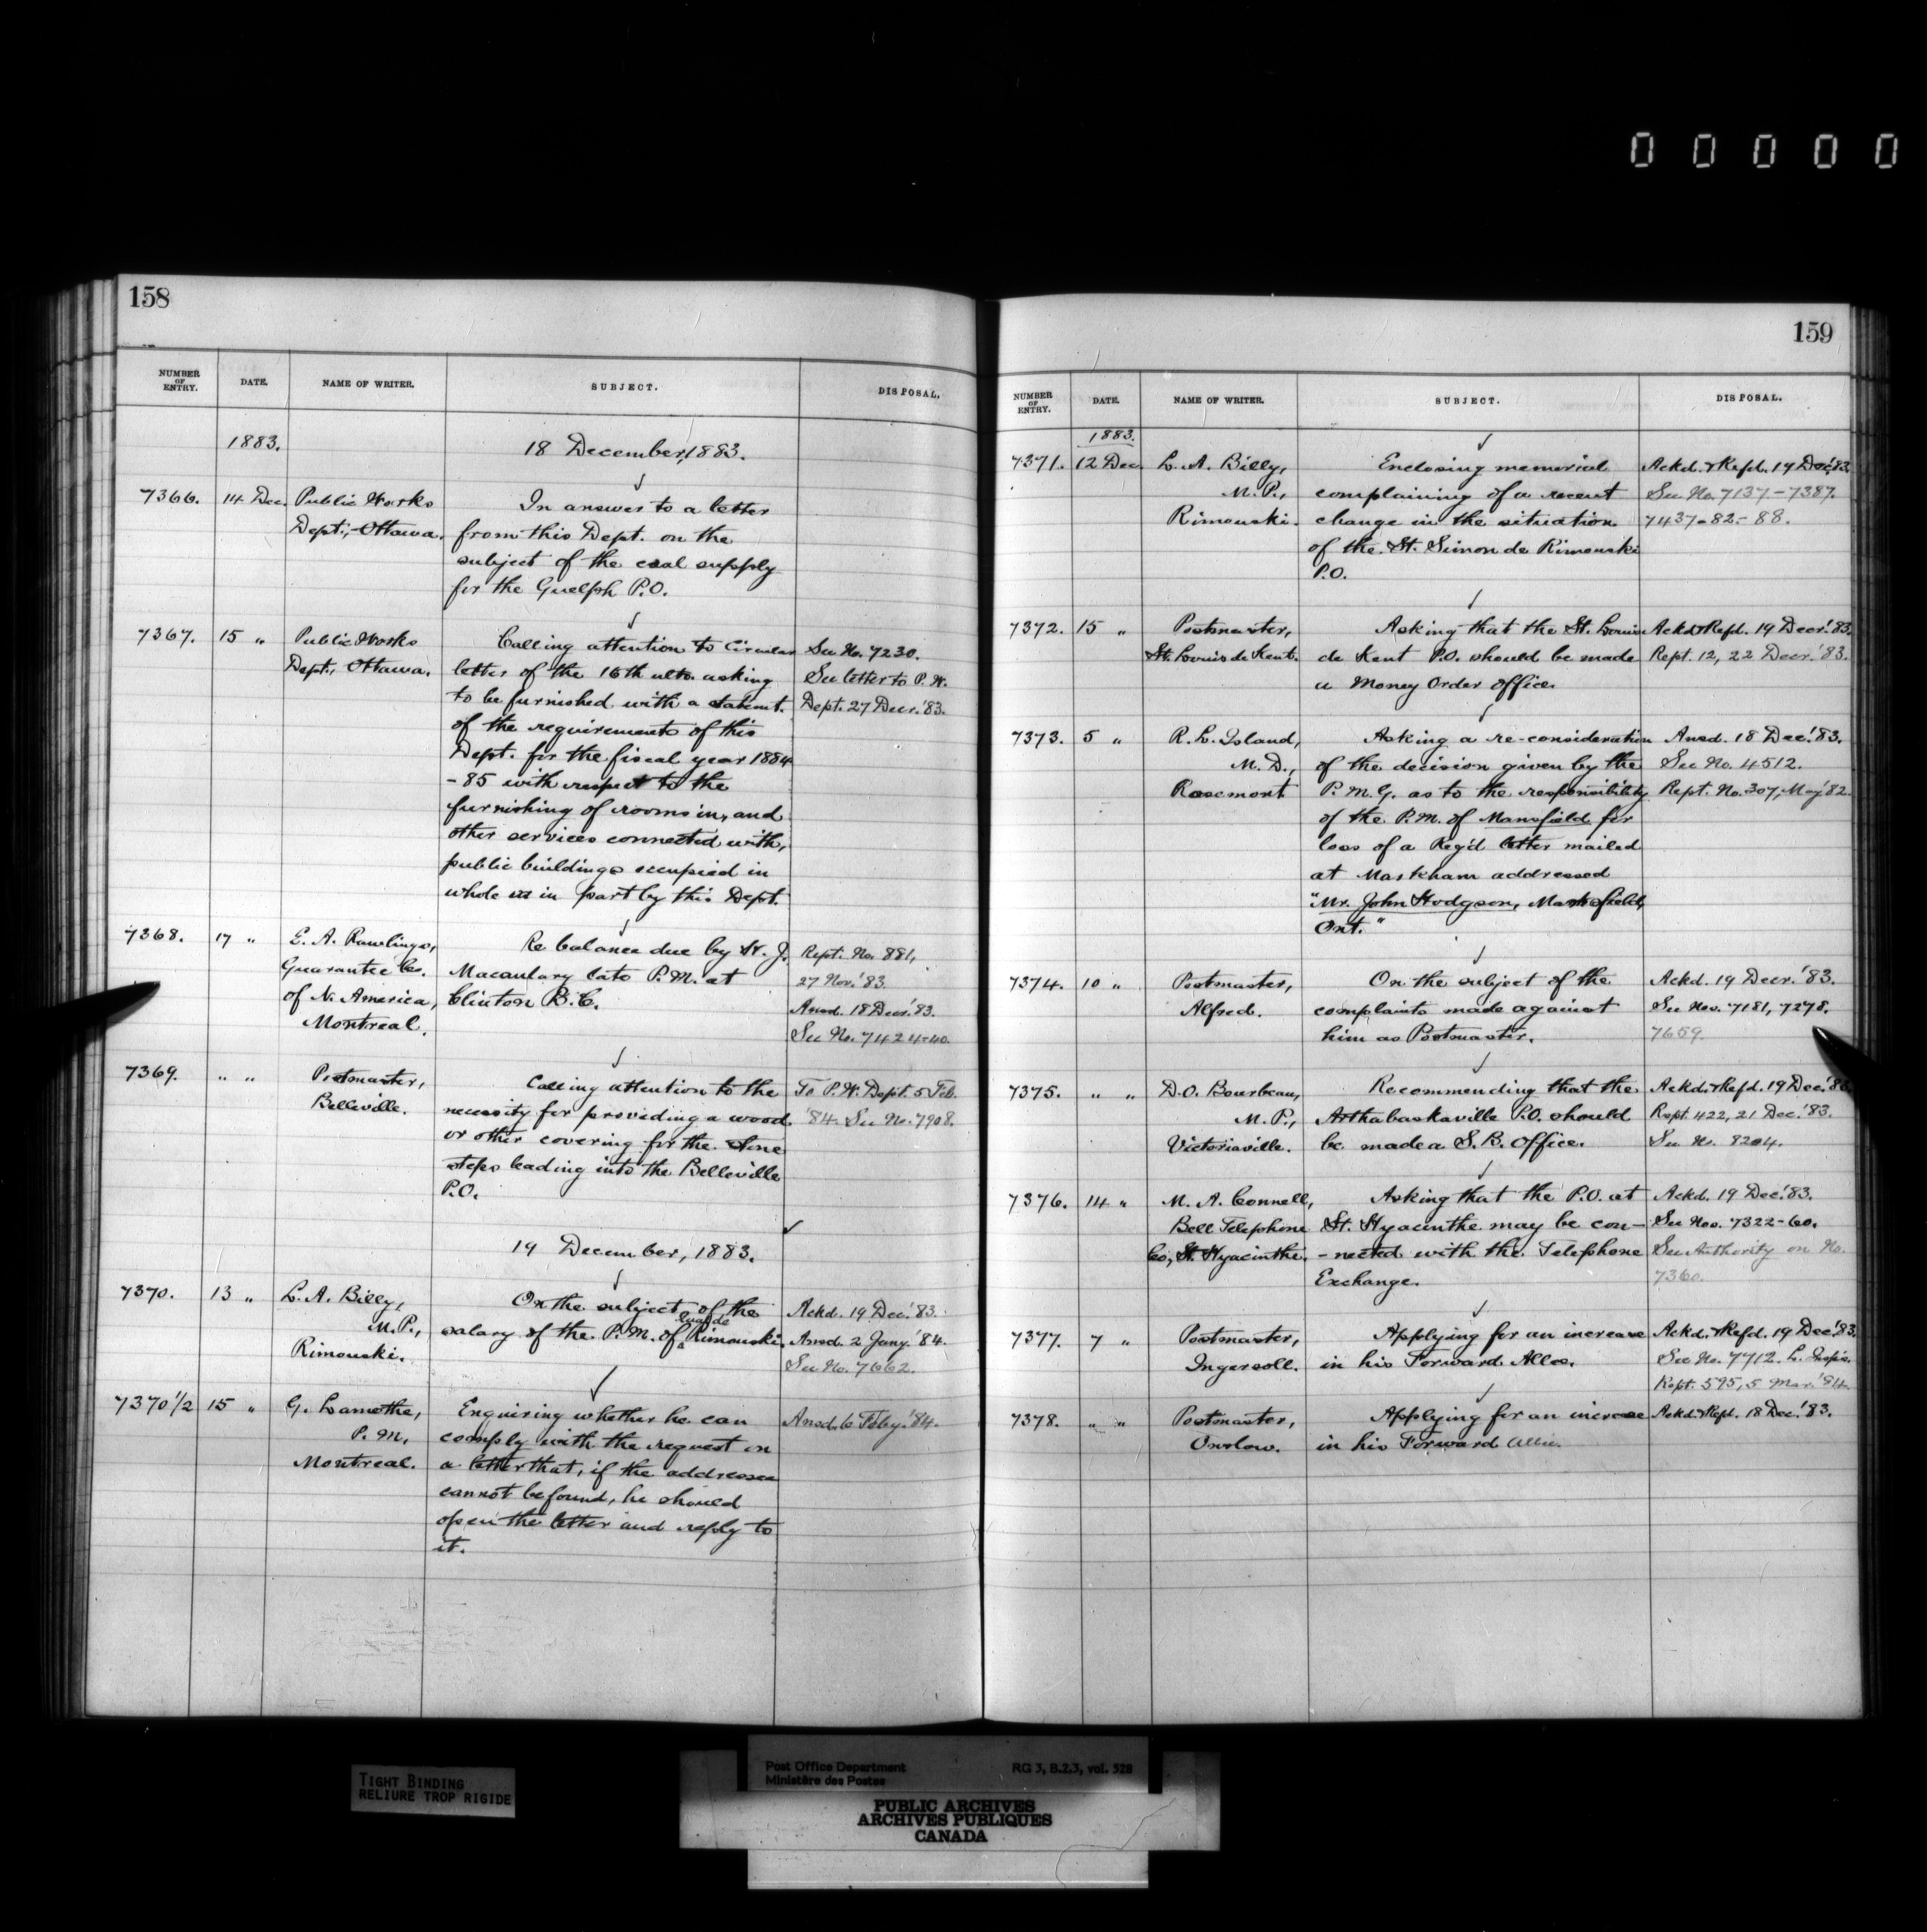 00000
158
NUMBER OF ENTRY. DATE. NAME OF WRITER. SUBJECT. DISPOSAL.
1883. 18 December, 1883.
7366. 14 Dec. Public Works In answer to a letter
Dept., Ottawa. from this Dept. on the
subject of the coal supply
for the Guelph P.O.
7367. 15 " Public Works Calling attention to Circular See No. 7230.
Dept., Ottawa. letter of the 16th ulto. asking See letter to P. W.
to be furnished with a statemt. Dept. 27 Decr. '83.
of the requirements of this
Dept. for the fiscal year 1884
-85 with respect to the
furnishing of rooms in, and
other services connected with,
public buildings occupied in
whole or in part by this Dept.
7368. 17 " E. A. Rawlings, Re balance due by J. Rept. No. 881,
Guarantee Co. Macaulary late P.M. at 27 Nov. '83.
of N. America, Clinton B.C. Ansd. 18 Decr. '83.
Montreal. See No. 7424-40.
7369. " " Postmaster, Calling attention to the To P.W. Dept. 5 Feb.
Belleville. necessity for providing a wood '84. See No. 7908.
or other covering for the stone
steps leading into the Belleville
P.O.
19 December, 1883.
7370. 13 " L. A. Billy, On the subject of the Ackd. 19 Dec. '83.
M.P., salary of the P.M. of Rimouski. Ansd. 2 Jany. '84.
Rimouski. See No. 7662.
7370 1/2 15 " G. Lamothe, Enquiring whether he can Ansd. 6 Feby. '84.
P.M., comply with the request in
Montreal. a letter that, if the addressee
cannot be found, he should
open the letter and reply to
it.
159
NUMBER OF ENTRY. DATE. NAME OF WRITER. SUBJECT. DISPOSAL.
1883.
7371. 12 Dec. L. A. Billy, Enclosing memorial Ackd. & Refd. 19 Dec. '83.
M.P., complaining of a recent See No. 7137-7387.
Rimouski. change in the situation 7437-82-88.
of the St. Simon de Rimouski
P.O.
7372. 15 " Postmaster, Asking that the St. Louis Ackd. & Refd. 19 Decr. '83.
St. Louis de Kent. de Kent P.O. should be made Rept. 12, 22 Decr. '83.
a Money Order Office.
7373. 5 " R. L. Island, Asking a re-consideration Ansd. 18 Dec. '83.
M.D., of the decision given by the See No. 4512.
Rosemont P.M.G. as to the responsibility Rept. No. 307, May '82.
of the P.M. of Mansfield for
loss of a Reg'd letter mailed
at Markham addressed
"Mr. John Hodgson, Mansfield,
Ont."
7374. 10 " Postmaster, On the subject of the Ackd. 19 Decr. '83.
Alfred. complaints made against See Nos. 7181, 7278.
him as Postmaster. 7659.
7375. " " D.O. Bourbeau, Recommending that the Ackd. & Refd. 19 Dec. '83.
M.P., Arthabaskaville P.O. should Rept. 422, 21 Dec. '83.
Victoriaville. be made a S.B. Office. See No. 8204.
7376. 14 " M. A. Connell, Asking that the P.O. at Ackd. 19 Dec. '83.
Bell Telephone St. Hyacinthe may be con- See Nos. 7322-60.
Co., St. Hyacinthe. -nected with the Telephone See Authority on No.
Exchange. 7360.
7377. 7 " Postmaster, Applying for an increase Ackd. & Refd. 19 Dec. '83.
Ingersoll. in his Forward Allce. See No. 7712.
Rept. 595, 5 Mar. '84.
7378. " " Postmaster, Applying for an increase Ackd. & Refd. 18 Dec. '83.
Onslow. in his Forward Allce.
TIGHT BINDING
RELIURE TROP RIGIDE
Post Office Department RG 3, B.2.3, vol. 528
Ministère des Postes
PUBLIC ARCHIVES
ARCHIVES PUBLIQUES
CANADA